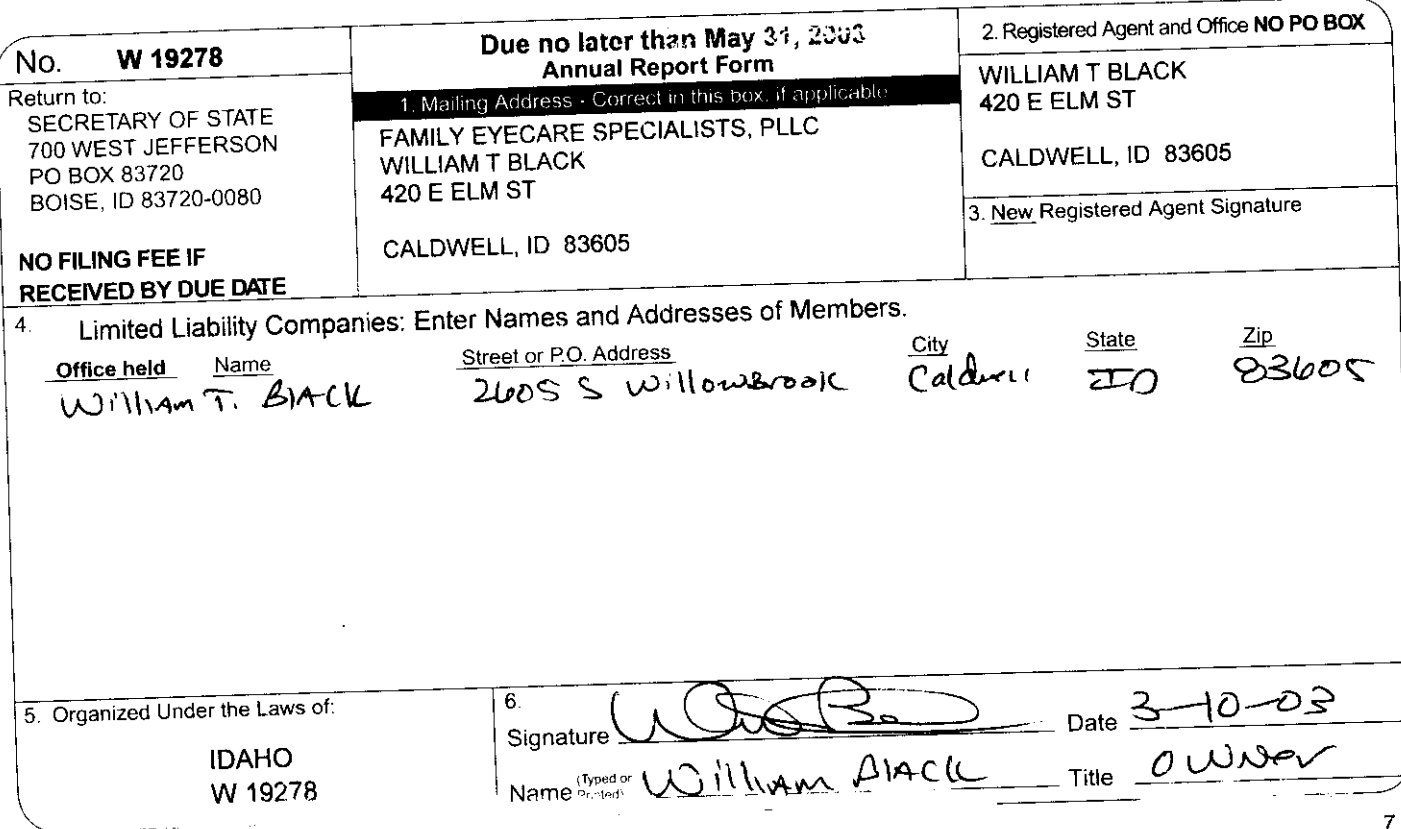 No. W 19278
Return to:
SECRETARY OF STATE
700 WEST JEFFERSON
PO BOX 83720
BOISE, ID 83720-0080
NO FILING FEE IF
RECEIVED BY DUE DATE
Due no later than May 31, 2003
Annual Report Form
1. Mailing Address - Correct in this box, if applicable
FAMILY EYECARE SPECIALISTS, PLLC
WILLIAM T BLACK
420 E ELM ST
CALDWELL, ID 83605
2. Registered Agent and Office NO PO BOX
WILLIAM T BLACK
420 E ELM ST
CALDWELL, ID 83605
3. New Registered Agent Signature
4. Limited Liability Companies: Enter Names and Addresses of Members.
Office held Name Street or P.O. Address City State Zip
William T. Black 2605 S Willowbrook Caldwell ID 83605
5. Organized Under the Laws of:
IDAHO
W 19278
6.
Signature Date 3-10-03
Name (Typed or Printed) William Black Title owner
7